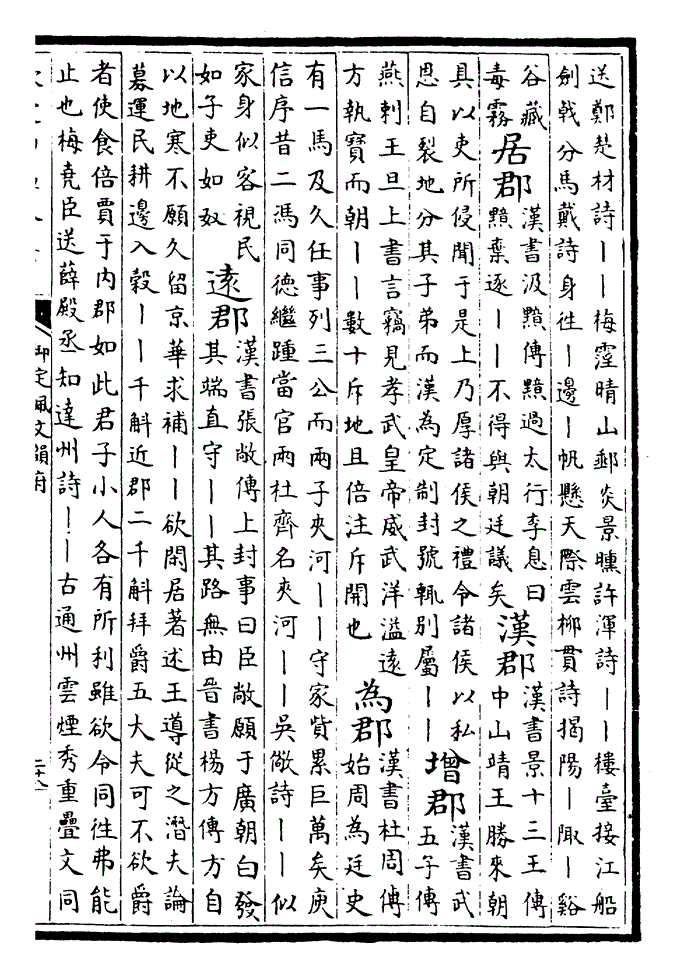 送鄭楚材詩丨丨梅霪晴山郵炎景曛許渾詩丨丨樓臺接江船
劍戟分馬戴詩身徃丨邊丨帆懸天際雲栁貫詩揭陽丨陬丨谿
谷藏
毒霧
居郡
漢書汲黯傳黯過太行李息曰
黯棄逐丨丨不得與朝廷議矣
漢郡
漢書景十三王傳
中山靖王勝來朝
具以吏所侵聞于是上乃厚諸侯之禮令諸侯以私
恩自裂地分其子弟而漢為定制封號輒別屬丨丨
增郡
漢書武
五子傳
燕剌王旦上書言竊見孝武皇帝威武洋溢遠
方執寶而朝丨丨數十斥地且倍注斥開也
為郡
漢書杜周傳
始周為廷史
有一馬及久任事列三公而兩子夾河丨丨守家貲累巨萬矣庾
信序昔二馮同德繼踵當官兩杜齊名夾河丨丨吳儆詩丨丨似
家身似客視民
如子吏如奴
遠郡
漢書張敞傳上封事曰臣敞願于廣朝白發
其端直守丨丨其路無由晉書楊方傳方自
以地寒不願久留京華求補丨丨欲閑居著述王導從之潛夫論
募運民耕邊入穀丨丨千斛近郡二千斛拜爵五大夫可不欲爵
者使食倍賈于内郡如此君子小人各有所利雖欲令同徃弗能
止也梅堯臣送薛殿丞知達州詩丨丨古通州雲煙秀重疊文同
御定佩文韻府